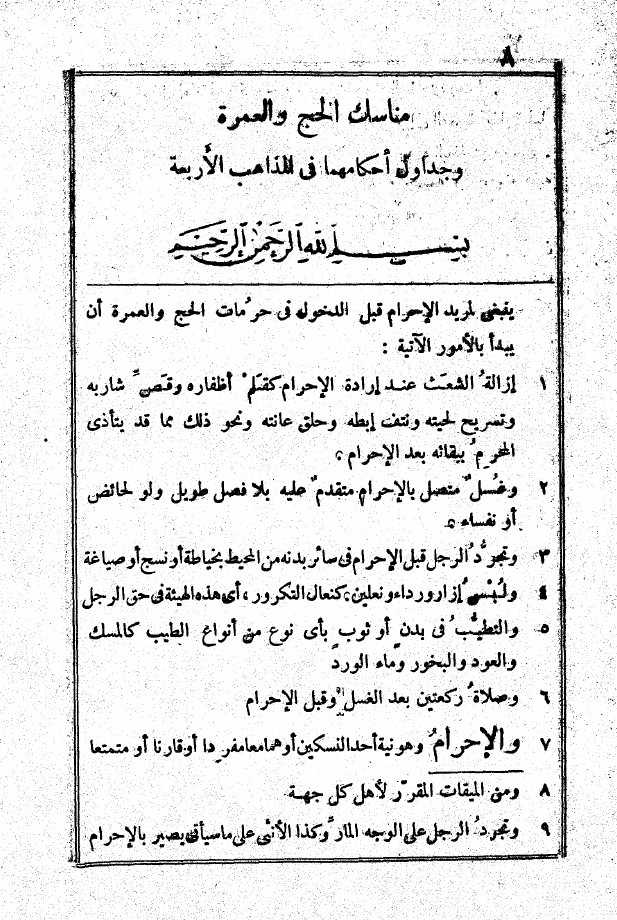 ٨
مناسك الحج والعمرة
وجداول أحكامهما فى المذاهب الأربعة
بسم الله الرحمن الرحيم
ينبغى لمريد الإحرام قبل الدخول فى حرمات الحج والعمرة أن
يبدأ بالأمور الآتية :
١ إزالةُ الشعَث عند إرادة الإحرام كقَلْم أظفاره وقَصِّ شاربه
وتسريح لحيته ونتف إبطه وحلق عانته ونحو ذلك مما قد يتأذى
المحرِمُ ببقائه بعد الإحرام ،
٢ وغُسلٌ متصل بالإحرام متقدمٌ عليه بلا فصل طويل ولو لحائض
أو نفساء ،
٣ وتجرُّدُ الرجل قبل الإحرام فى سائر بدنه من المحيط بخياطة أو نسج أو صياغة
٤ ولُبْسُ إزار ورداء ونعلين ، كنعال التكرور ، أى هذه الهيئة فى حق الرجل
٥ والتطيُّبُ فى بدنٍ أو ثوبٍ بأى نوع من أنواع الطيب كالمسك
والعود والبخور وماء الورد
٦ وصلاةُ ركعتين بعد الغسل وقبل الإحرام
٧ والإحرامُ وهو نية أحد النسكين أو هما معا مفرِدا أو قارنا أو متمتعا
٨ ومن الميقات المقرّر لأهل كل جهة
٩ وتجردُ الرجل على الوجه المارّ وكذا الأنثى على ما سيأتى بصير بالإحرام